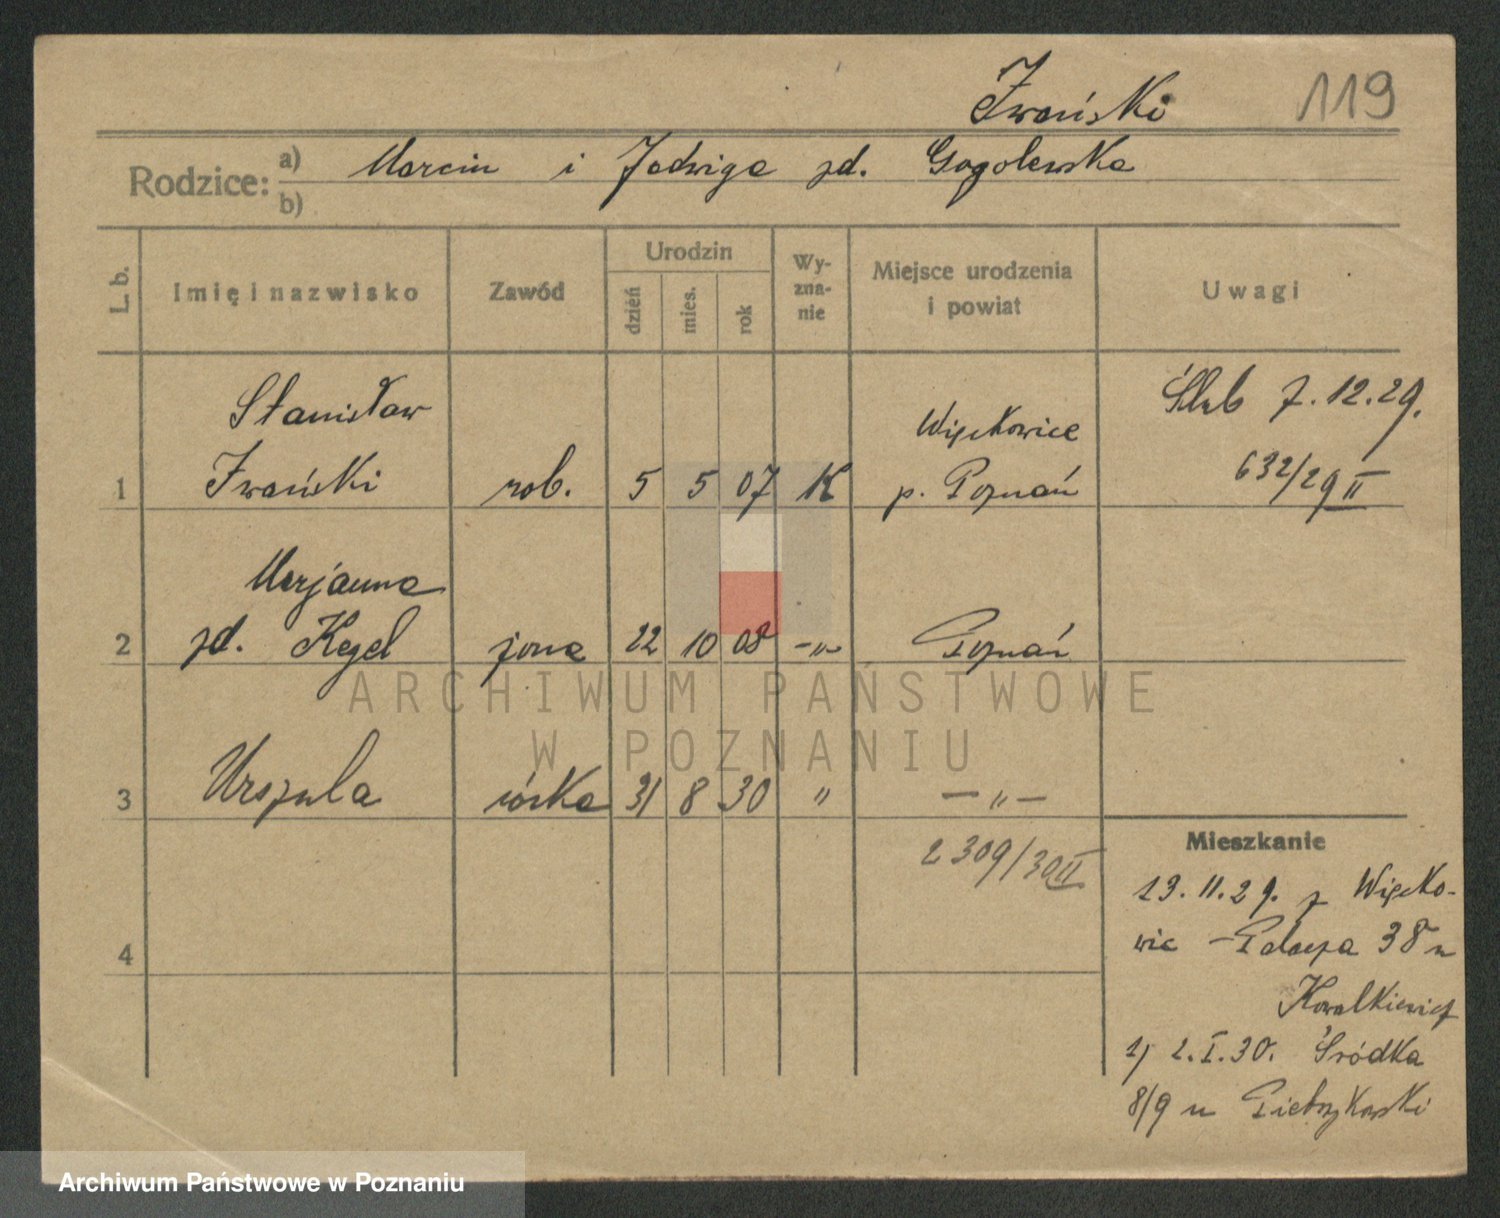 Iwański 119
Rodzice: a) Marcin i Jadwiga zd. Gogolewska
b)
L. b. Imię i nazwisko Zawód Urodzin dzień mies. rok Wyznanie Miejsce urodzenia i powiat Uwagi
Stanisław Więckowice Ślub 7.12.29.
1 Iwański rob. 5 5 07 K p. Poznań 632/29 II
Marjanna
2 zd. Kegel żona 22 10 08 -„- Poznań
ARCHIWUM PAŃSTWOWE
W POZNANIU
3 Urszula córka 31 8 30 „ -„-
2309/30 II
4
Mieszkanie
13.11.29. z Więcko-
wic - 38 u
Kowalkiewicz
1) 2.I.30. Śródka
8/9 u
Archiwum Państwowe w Poznaniu